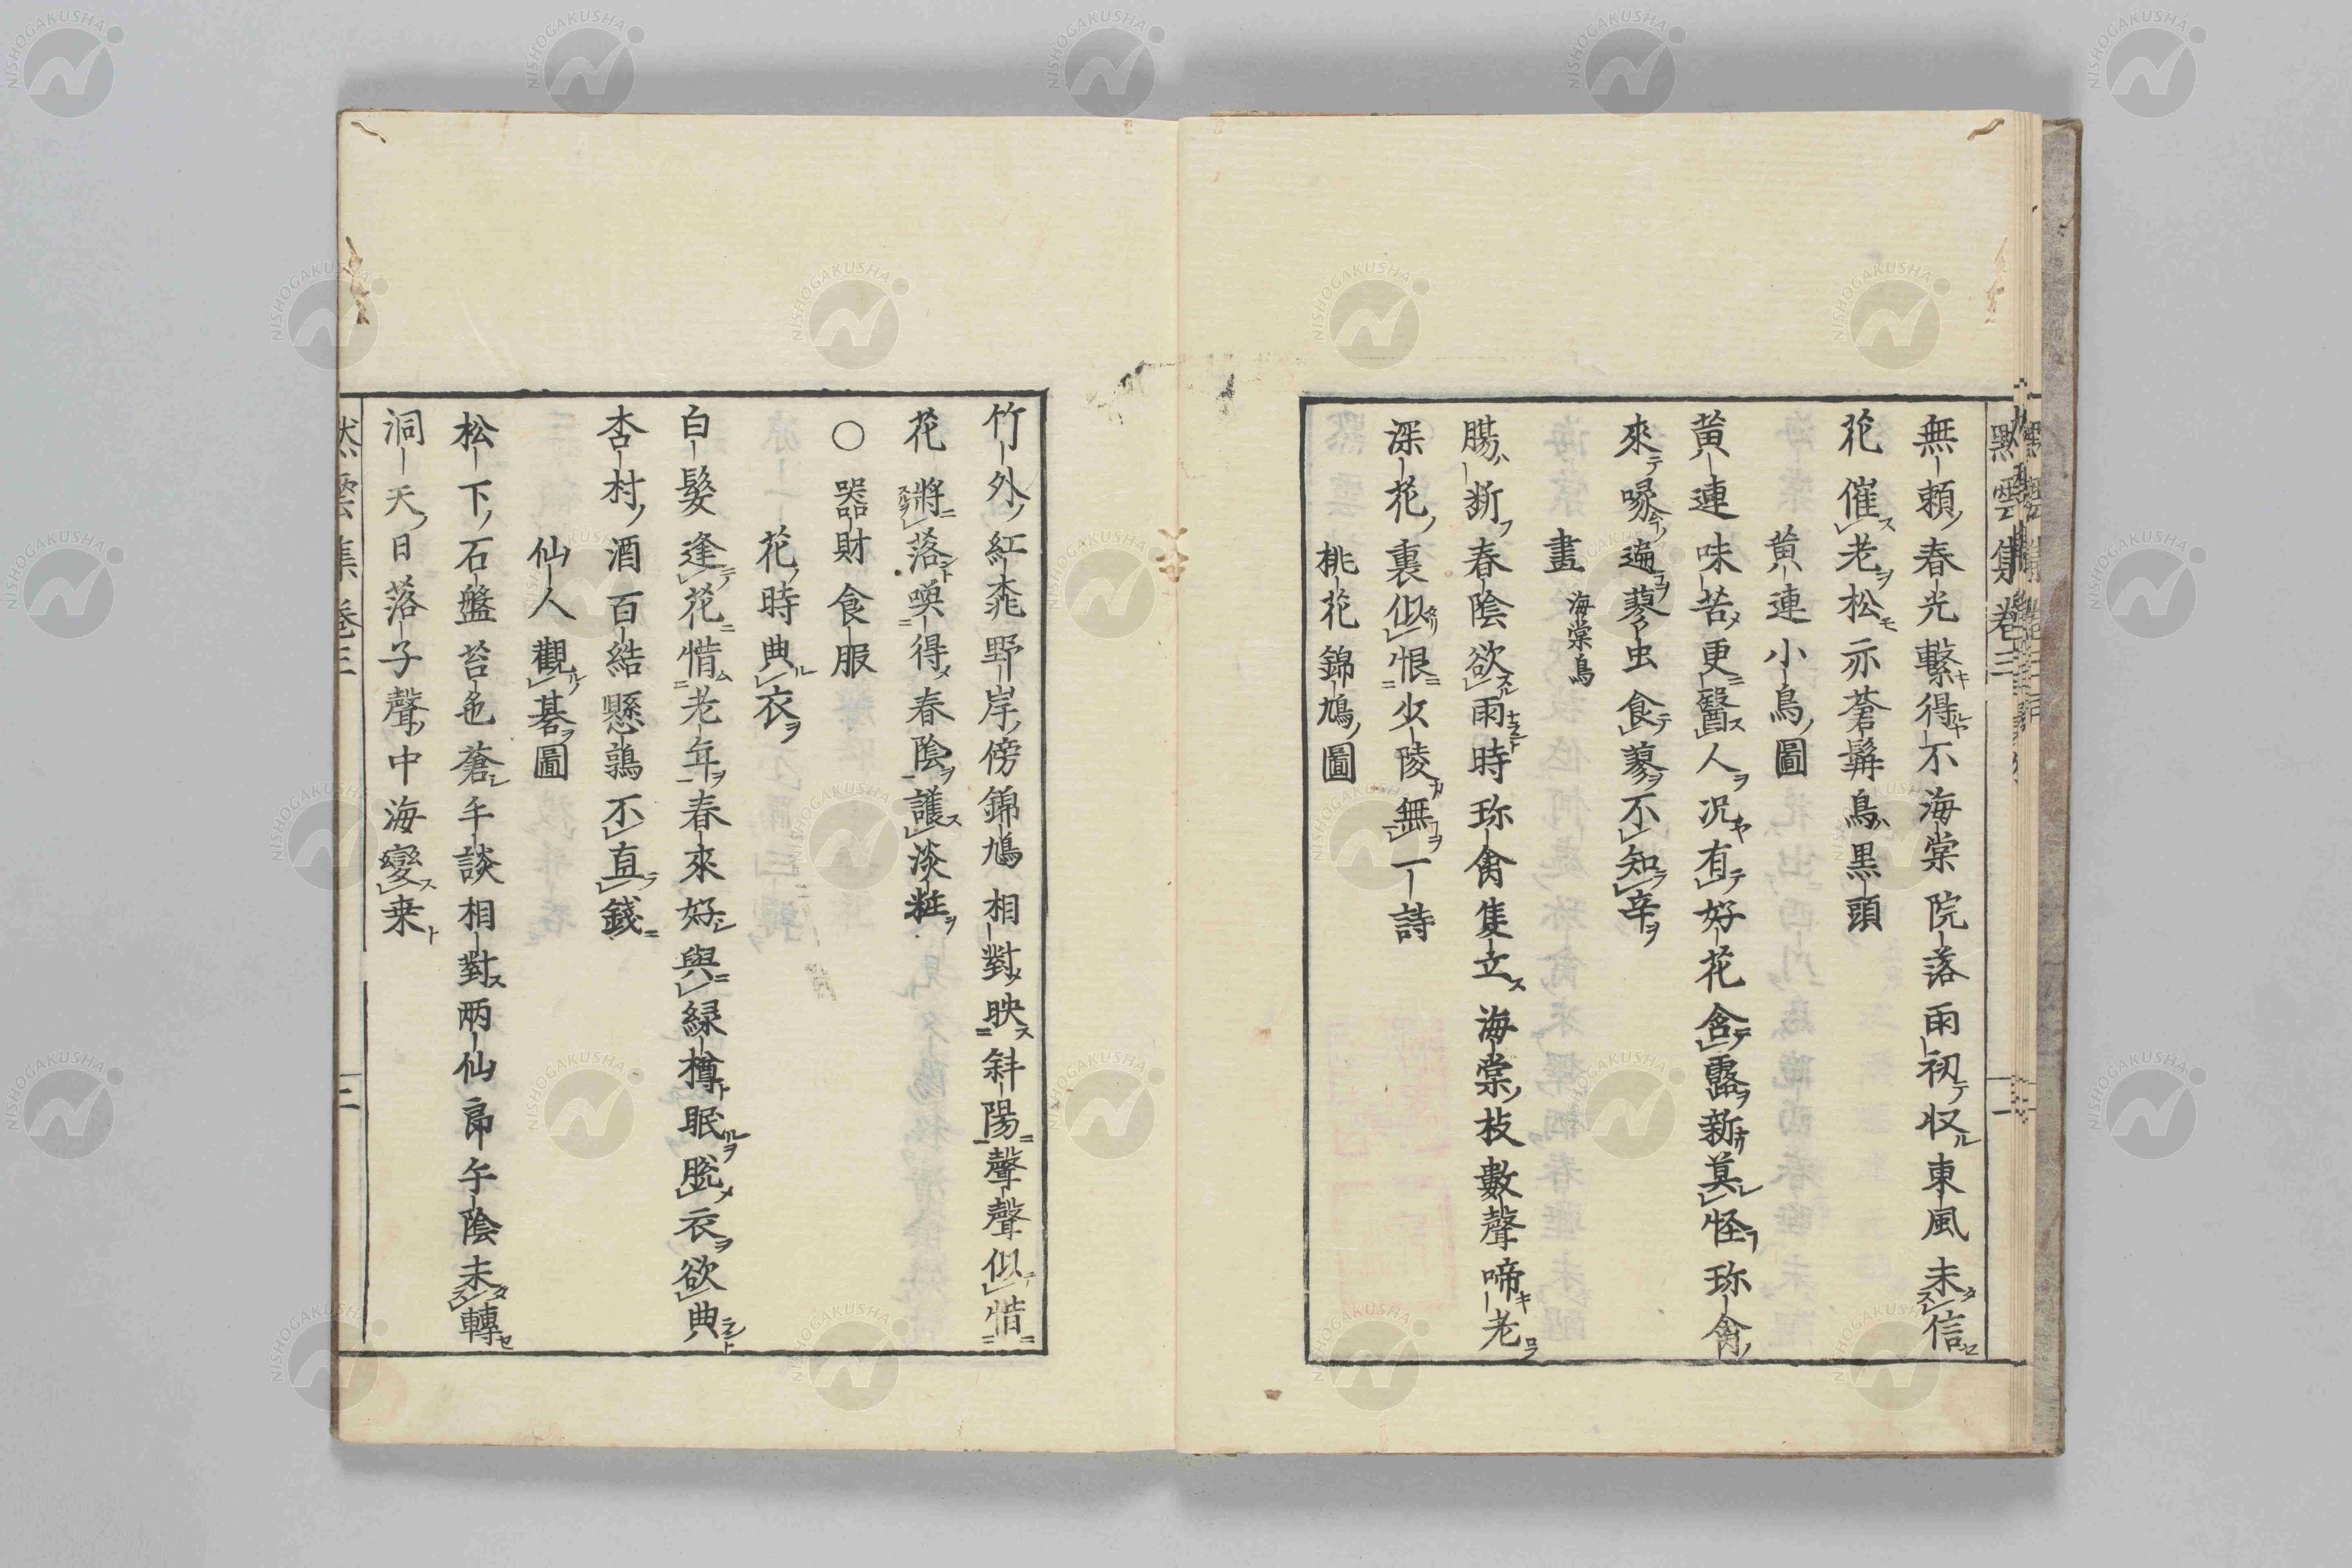 無頼春光繫得不海棠院落雨初收東風未信
花催老松亦蒼髯鳥黒頭
黄連小鳥圖
黄連味苦更醫人况有好花含露新莫怪珎禽
來啄遍蓼虫食蓼不知辛
畫海棠鳥
腸斷春陰欲雨時珎禽隻立海棠枝數聲啼老
深花裏似恨少陵無一詩
桃花錦鳩圖
竹外紅桃野岸傍錦鳩相對映斜陽聲聲似惜
花將落喚得春陰護淡粧
○器財食服
花時典衣
白髮逢花惜老年春來好與緑樽眠脱衣欲典
杏村酒百結懸鶉不直錢
仙人觀碁圖
松下石盤苔色蒼手談相對兩仙郎午陰未轉
洞天日落子聲中海變桒
黙雲集卷三
二
NISHOGAKUSHA